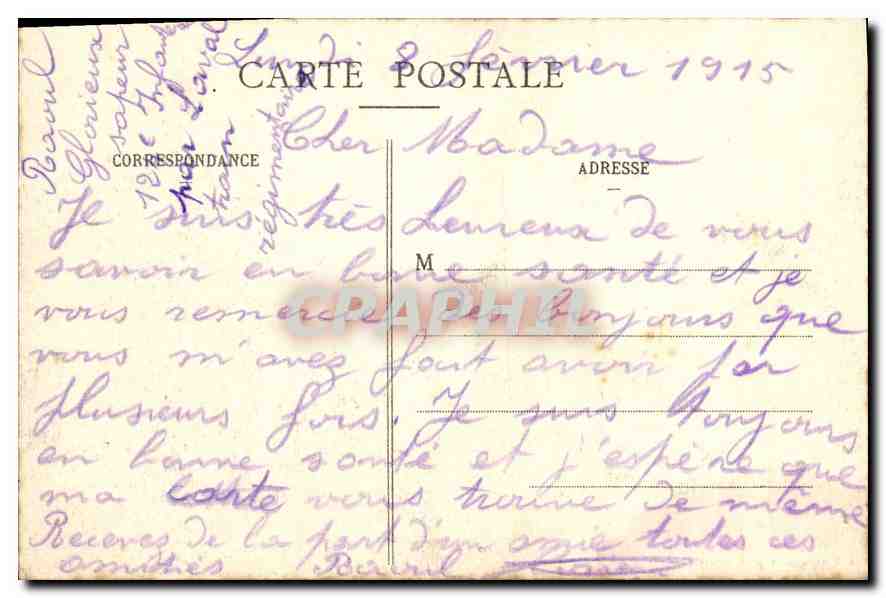 Raoul
Glorieux
sapeur
124e Infanterie
par Laval
train
régimentaire
Lundi 8 février 1915
CARTE POSTALE
Cher Madame
CORRESPONDANCE
ADRESSE
Je suis très heureux de vous
M
savoir en bonne santé et je
CPAPHIL
vous remercie des bonjours que
vous m'avez fait avoir par
plusieurs fois. Je suis toujours
en bonne santé et j'espère que
ma carte vous trouve de même
Recevez de la part d'un amie toutes ces
amitiés Raoul